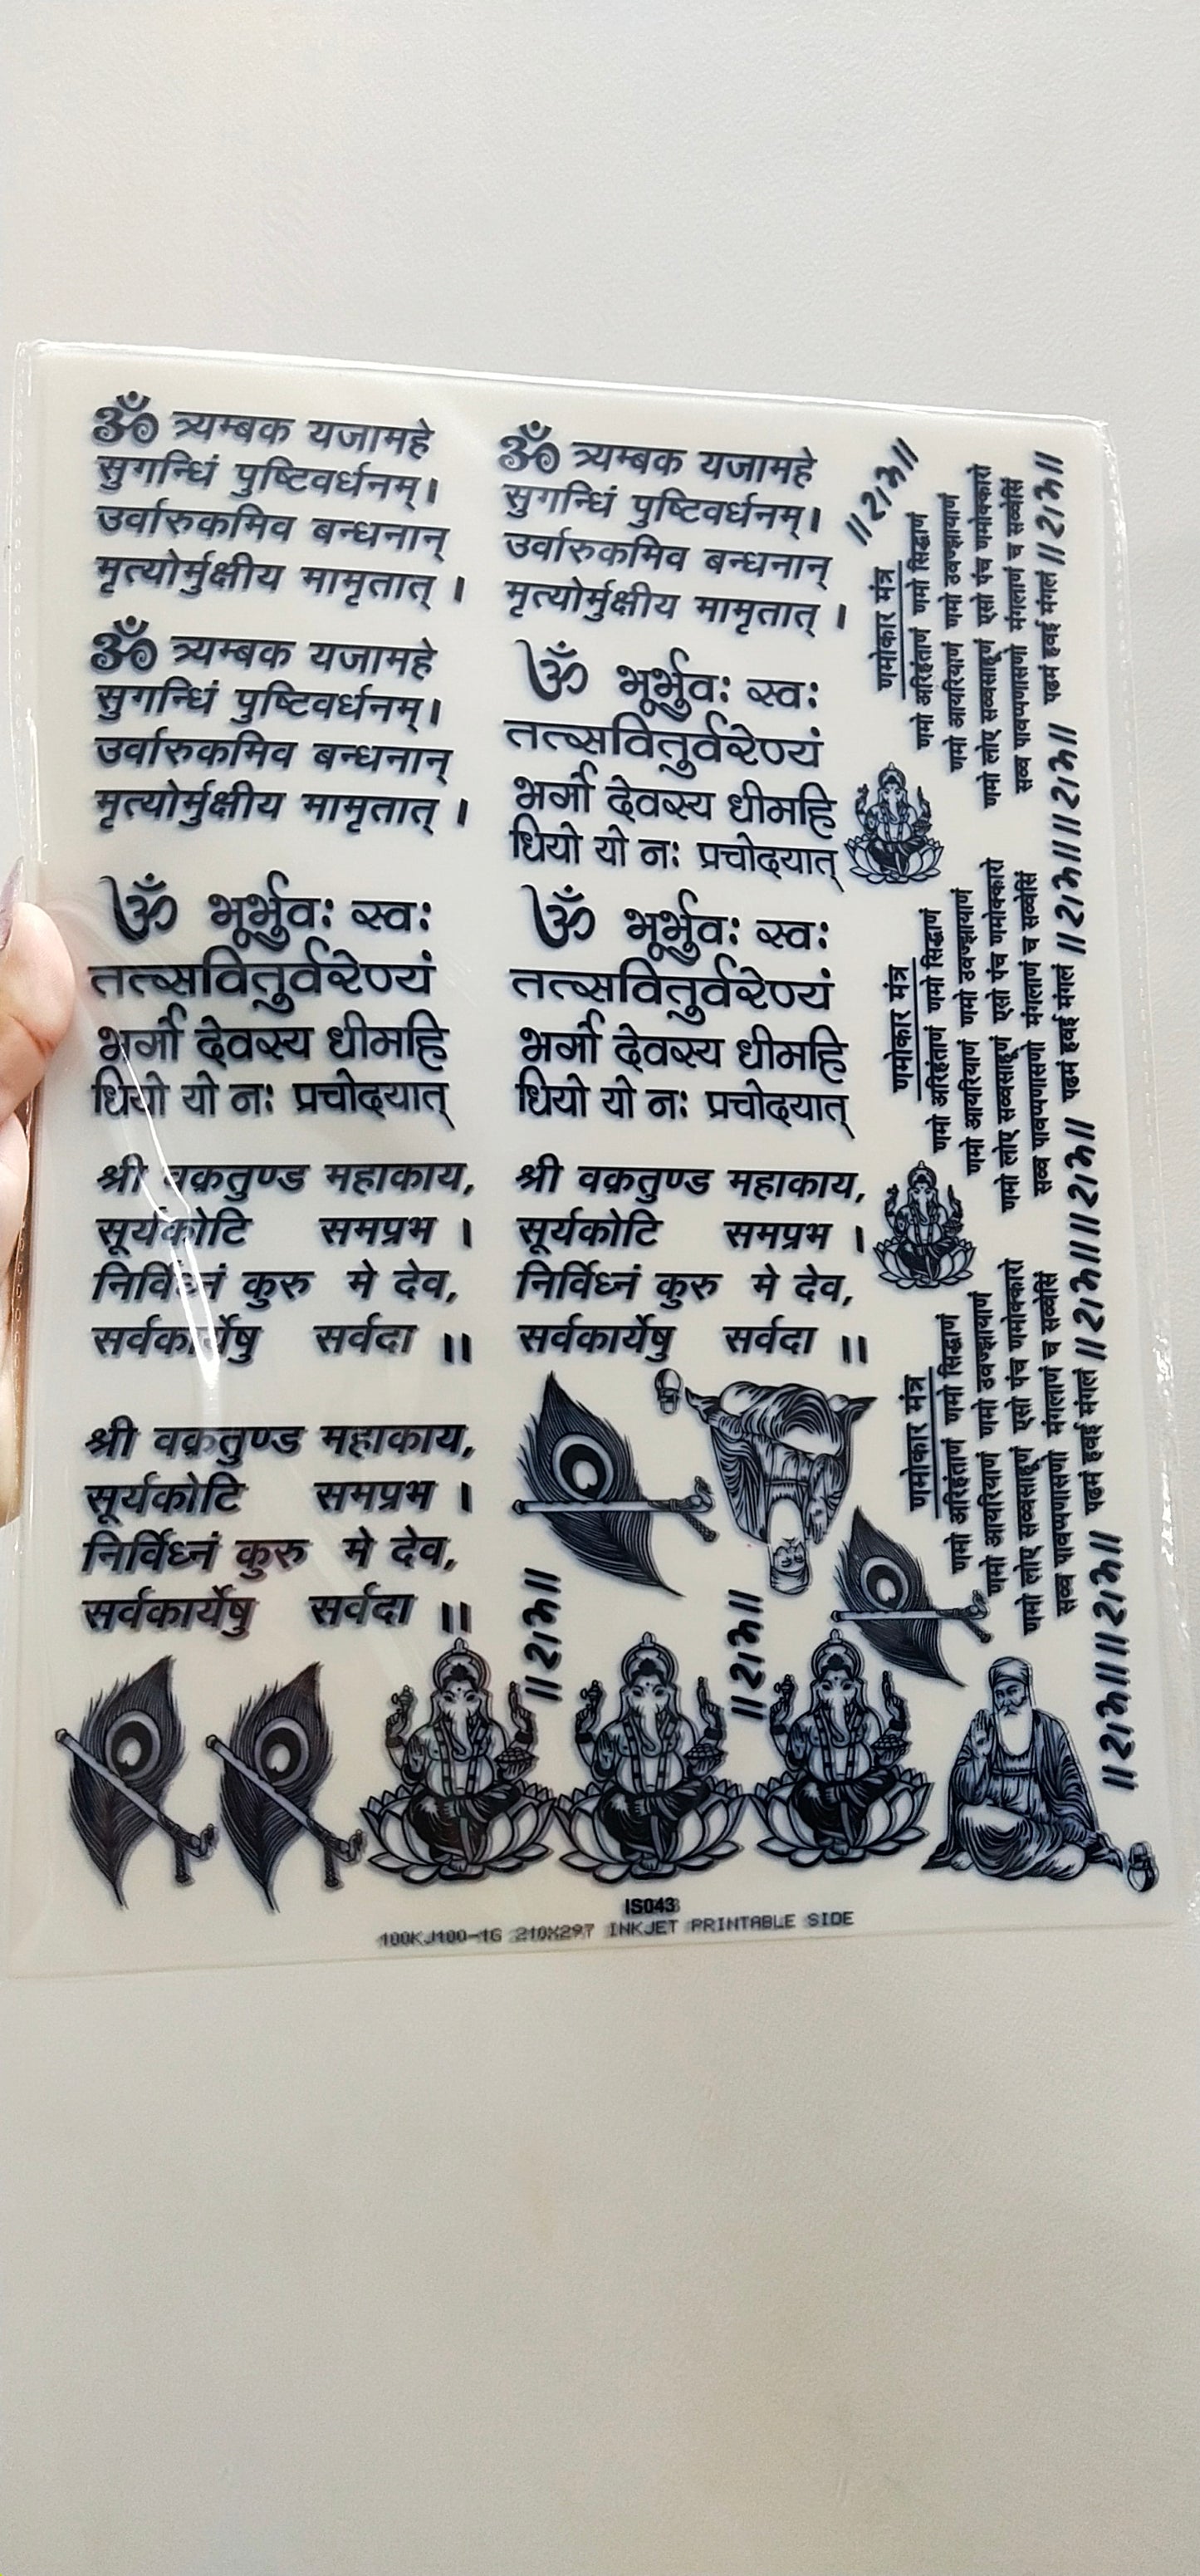 ॐ त्र्यम्बक यजामहे
सुगन्धिं पुष्टिवर्धनम्।
उर्वारुकमिव बन्धनान्
मृत्योर्मुक्षीय मामृतात् ।
ॐ त्र्यम्बक यजामहे
सुगन्धिं पुष्टिवर्धनम्।
उर्वारुकमिव बन्धनान्
मृत्योर्मुक्षीय मामृतात् ।
ॐ भूर्भुवः स्वः
तत्सवितुर्वरेण्यं
भर्गो देवस्य धीमहि
धियो यो नः प्रचोदयात्
श्री वक्रतुण्ड महाकाय,
सूर्यकोटि समप्रभ ।
निर्विध्नं कुरु मे देव,
सर्वकार्येषु सर्वदा ॥
श्री वक्रतुण्ड महाकाय,
सूर्यकोटि समप्रभ ।
निर्विध्नं कुरु मे देव,
सर्वकार्येषु सर्वदा ॥
ॐ त्र्यम्बक यजामहे
सुगन्धिं पुष्टिवर्धनम्।
उर्वारुकमिव बन्धनान्
मृत्योर्मुक्षीय मामृतात् ।
ॐ भूर्भुवः स्वः
तत्सवितुर्वरेण्यं
भर्गो देवस्य धीमहि
धियो यो नः प्रचोदयात्
ॐ भूर्भुवः स्वः
तत्सवितुर्वरेण्यं
भर्गो देवस्य धीमहि
धियो यो नः प्रचोदयात्
श्री वक्रतुण्ड महाकाय,
सूर्यकोटि समप्रभ ।
निर्विध्नं कुरु मे देव,
सर्वकार्येषु सर्वदा ॥
॥राम॥
॥राम॥
॥राम॥
णमोकार मंत्र
णमो अरिहंताणं णमो सिद्धाणं
णमो आयरियाणं णमो उवज्झायाणं
णमो लोए सव्वसाहूणं एसो पंच णमोक्कारो
सव्व पावप्पणासणो मंगलाणं च सव्वेसिं
पढमं हवई मंगलं
॥राम॥
॥राम॥
॥राम॥
णमोकार मंत्र
णमो अरिहंताणं णमो सिद्धाणं
णमो आयरियाणं णमो उवज्झायाणं
णमो लोए सव्वसाहूणं एसो पंच णमोक्कारो
सव्व पावप्पणासणो मंगलाणं च सव्वेसिं
पढमं हवई मंगलं
॥राम॥
॥राम॥
॥राम॥
णमोकार मंत्र
णमो अरिहंताणं णमो सिद्धाणं
णमो आयरियाणं णमो उवज्झायाणं
णमो लोए सव्वसाहूणं एसो पंच णमोक्कारो
सव्व पावप्पणासणो मंगलाणं च सव्वेसिं
पढमं हवई मंगलं
॥राम॥
॥राम॥
IS043
100KJ100-1G 210X297 INKJET PRINTABLE SIDE